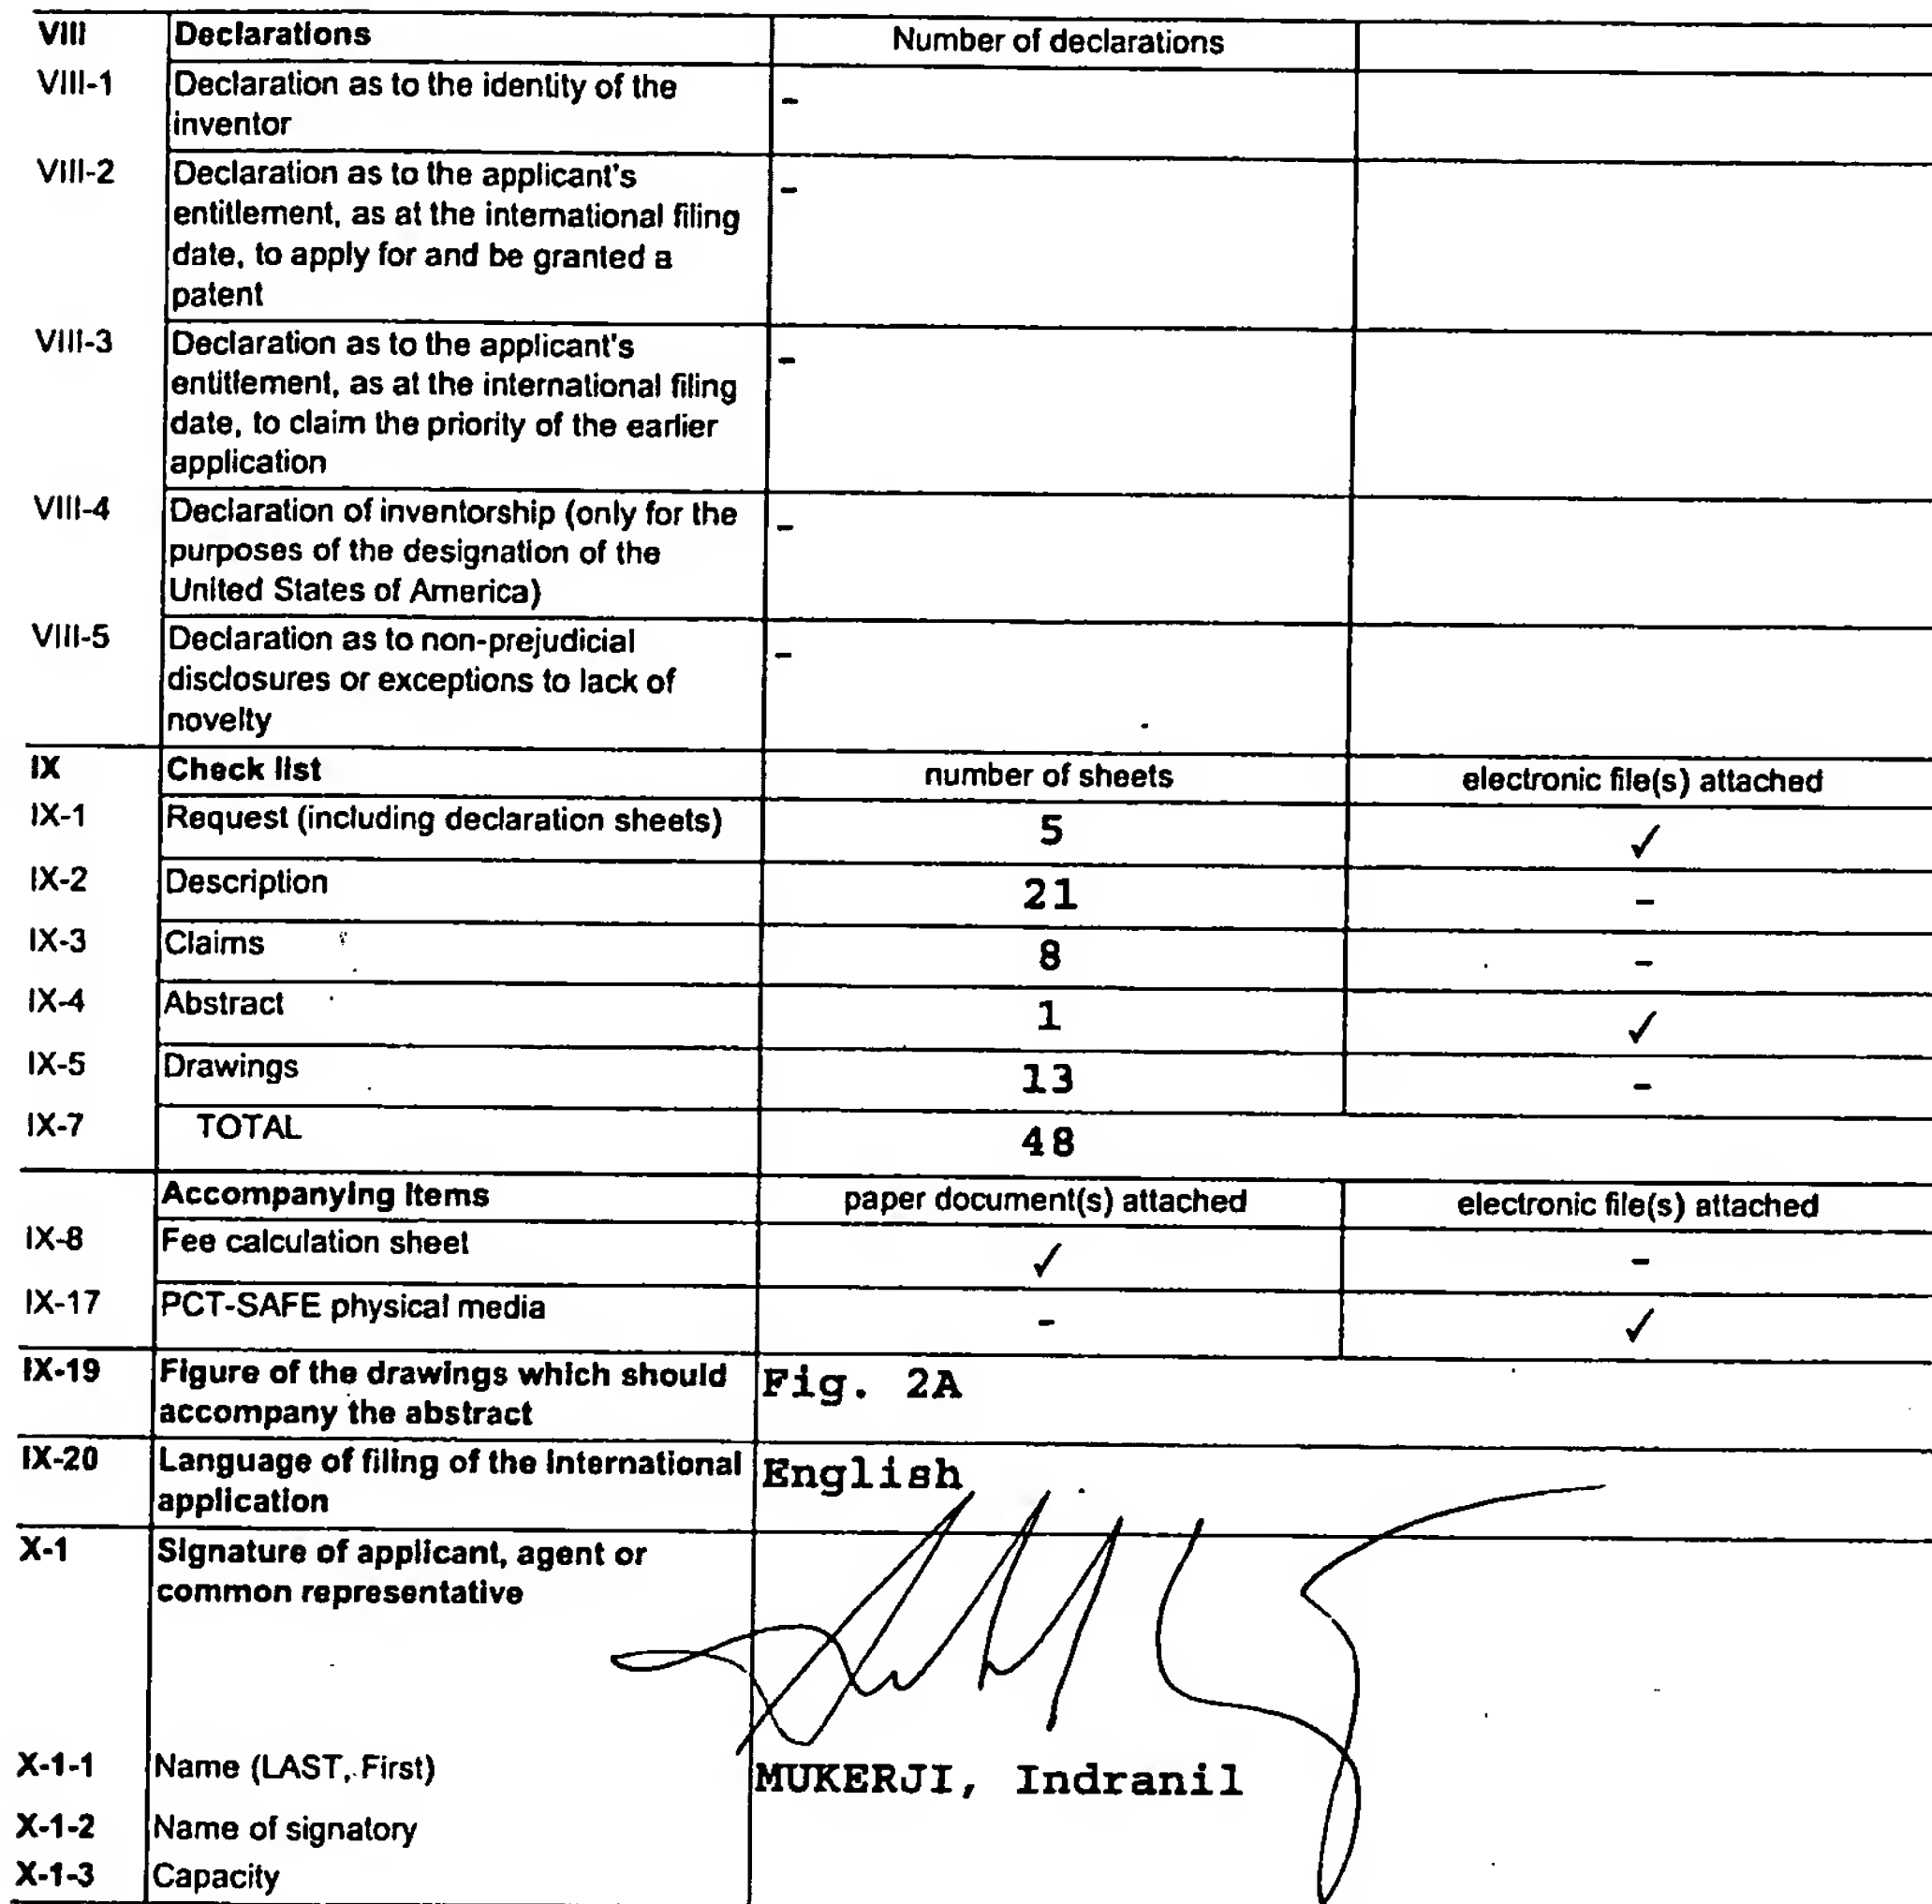 VIII Declarations Number of declarations
VIII-1 Declaration as to the identity of the -
inventor
VIII-2 Declaration as to the applicant's -
entitlement, as at the international filing
date, to apply for and be granted a
patent
VIII-3 Declaration as to the applicant's -
entitlement, as at the international filing
date, to claim the priority of the earlier
application
VIII-4 Declaration of inventorship (only for the -
purposes of the designation of the
United States of America)
VIII-5 Declaration as to non-prejudicial -
disclosures or exceptions to lack of
novelty
IX Check list number of sheets electronic file(s) attached
IX-1 Request (including declaration sheets) 5 ✓
IX-2 Description 21 -
IX-3 Claims 8 -
IX-4 Abstract 1 ✓
IX-5 Drawings 13 -
IX-7 TOTAL 48
Accompanying Items paper document(s) attached electronic file(s) attached
IX-8 Fee calculation sheet ✓ -
IX-17 PCT-SAFE physical media - ✓
IX-19 Figure of the drawings which should Fig. 2A
accompany the abstract
IX-20 Language of filing of the International English
application
X-1 Signature of applicant, agent or
common representative
X-1-1 Name (LAST, First) MUKERJI, Indranil
X-1-2 Name of signatory
X-1-3 Capacity